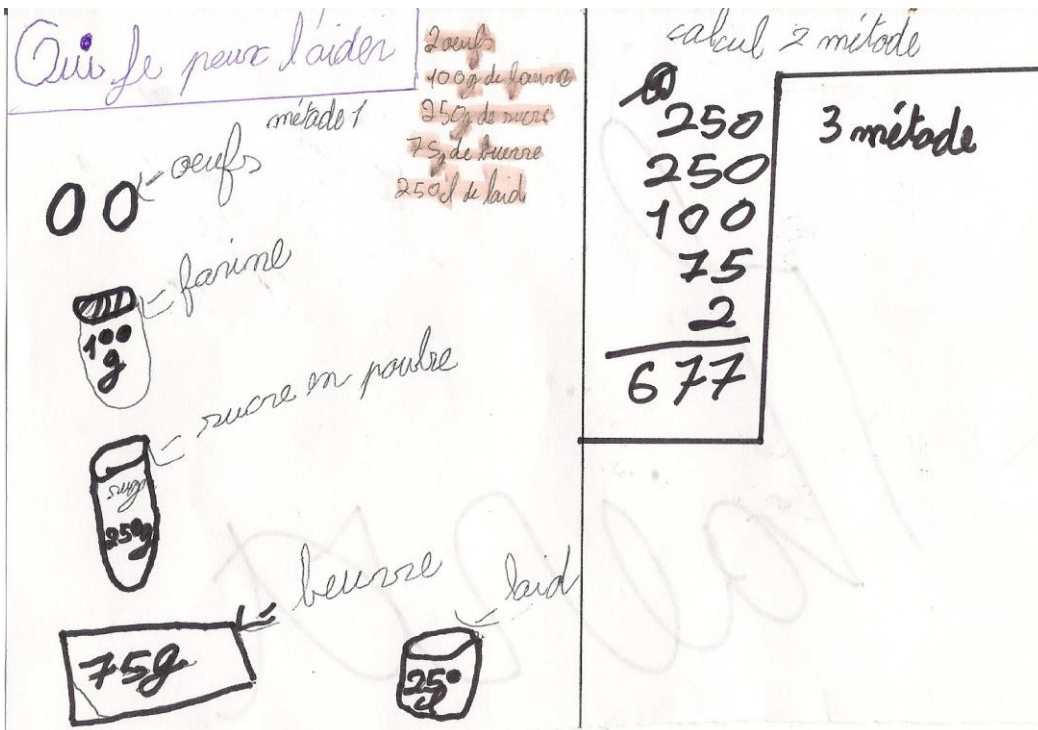 Oui Je peux l'aider
2 oeufs
100g de farine
250g de sucre
75g de buerre
250cl de laid
métode 1
oeufs
farine
100
g
sucre en poudre
250g
beurre
75g
laid
250
cl
calcul 2 métode
1
250
250
100
75
2
677
3 métode